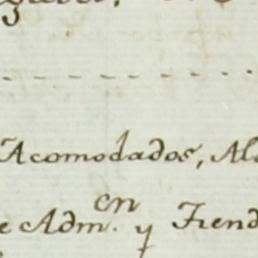 Acomodados, Al
e Adm.en y Tiend